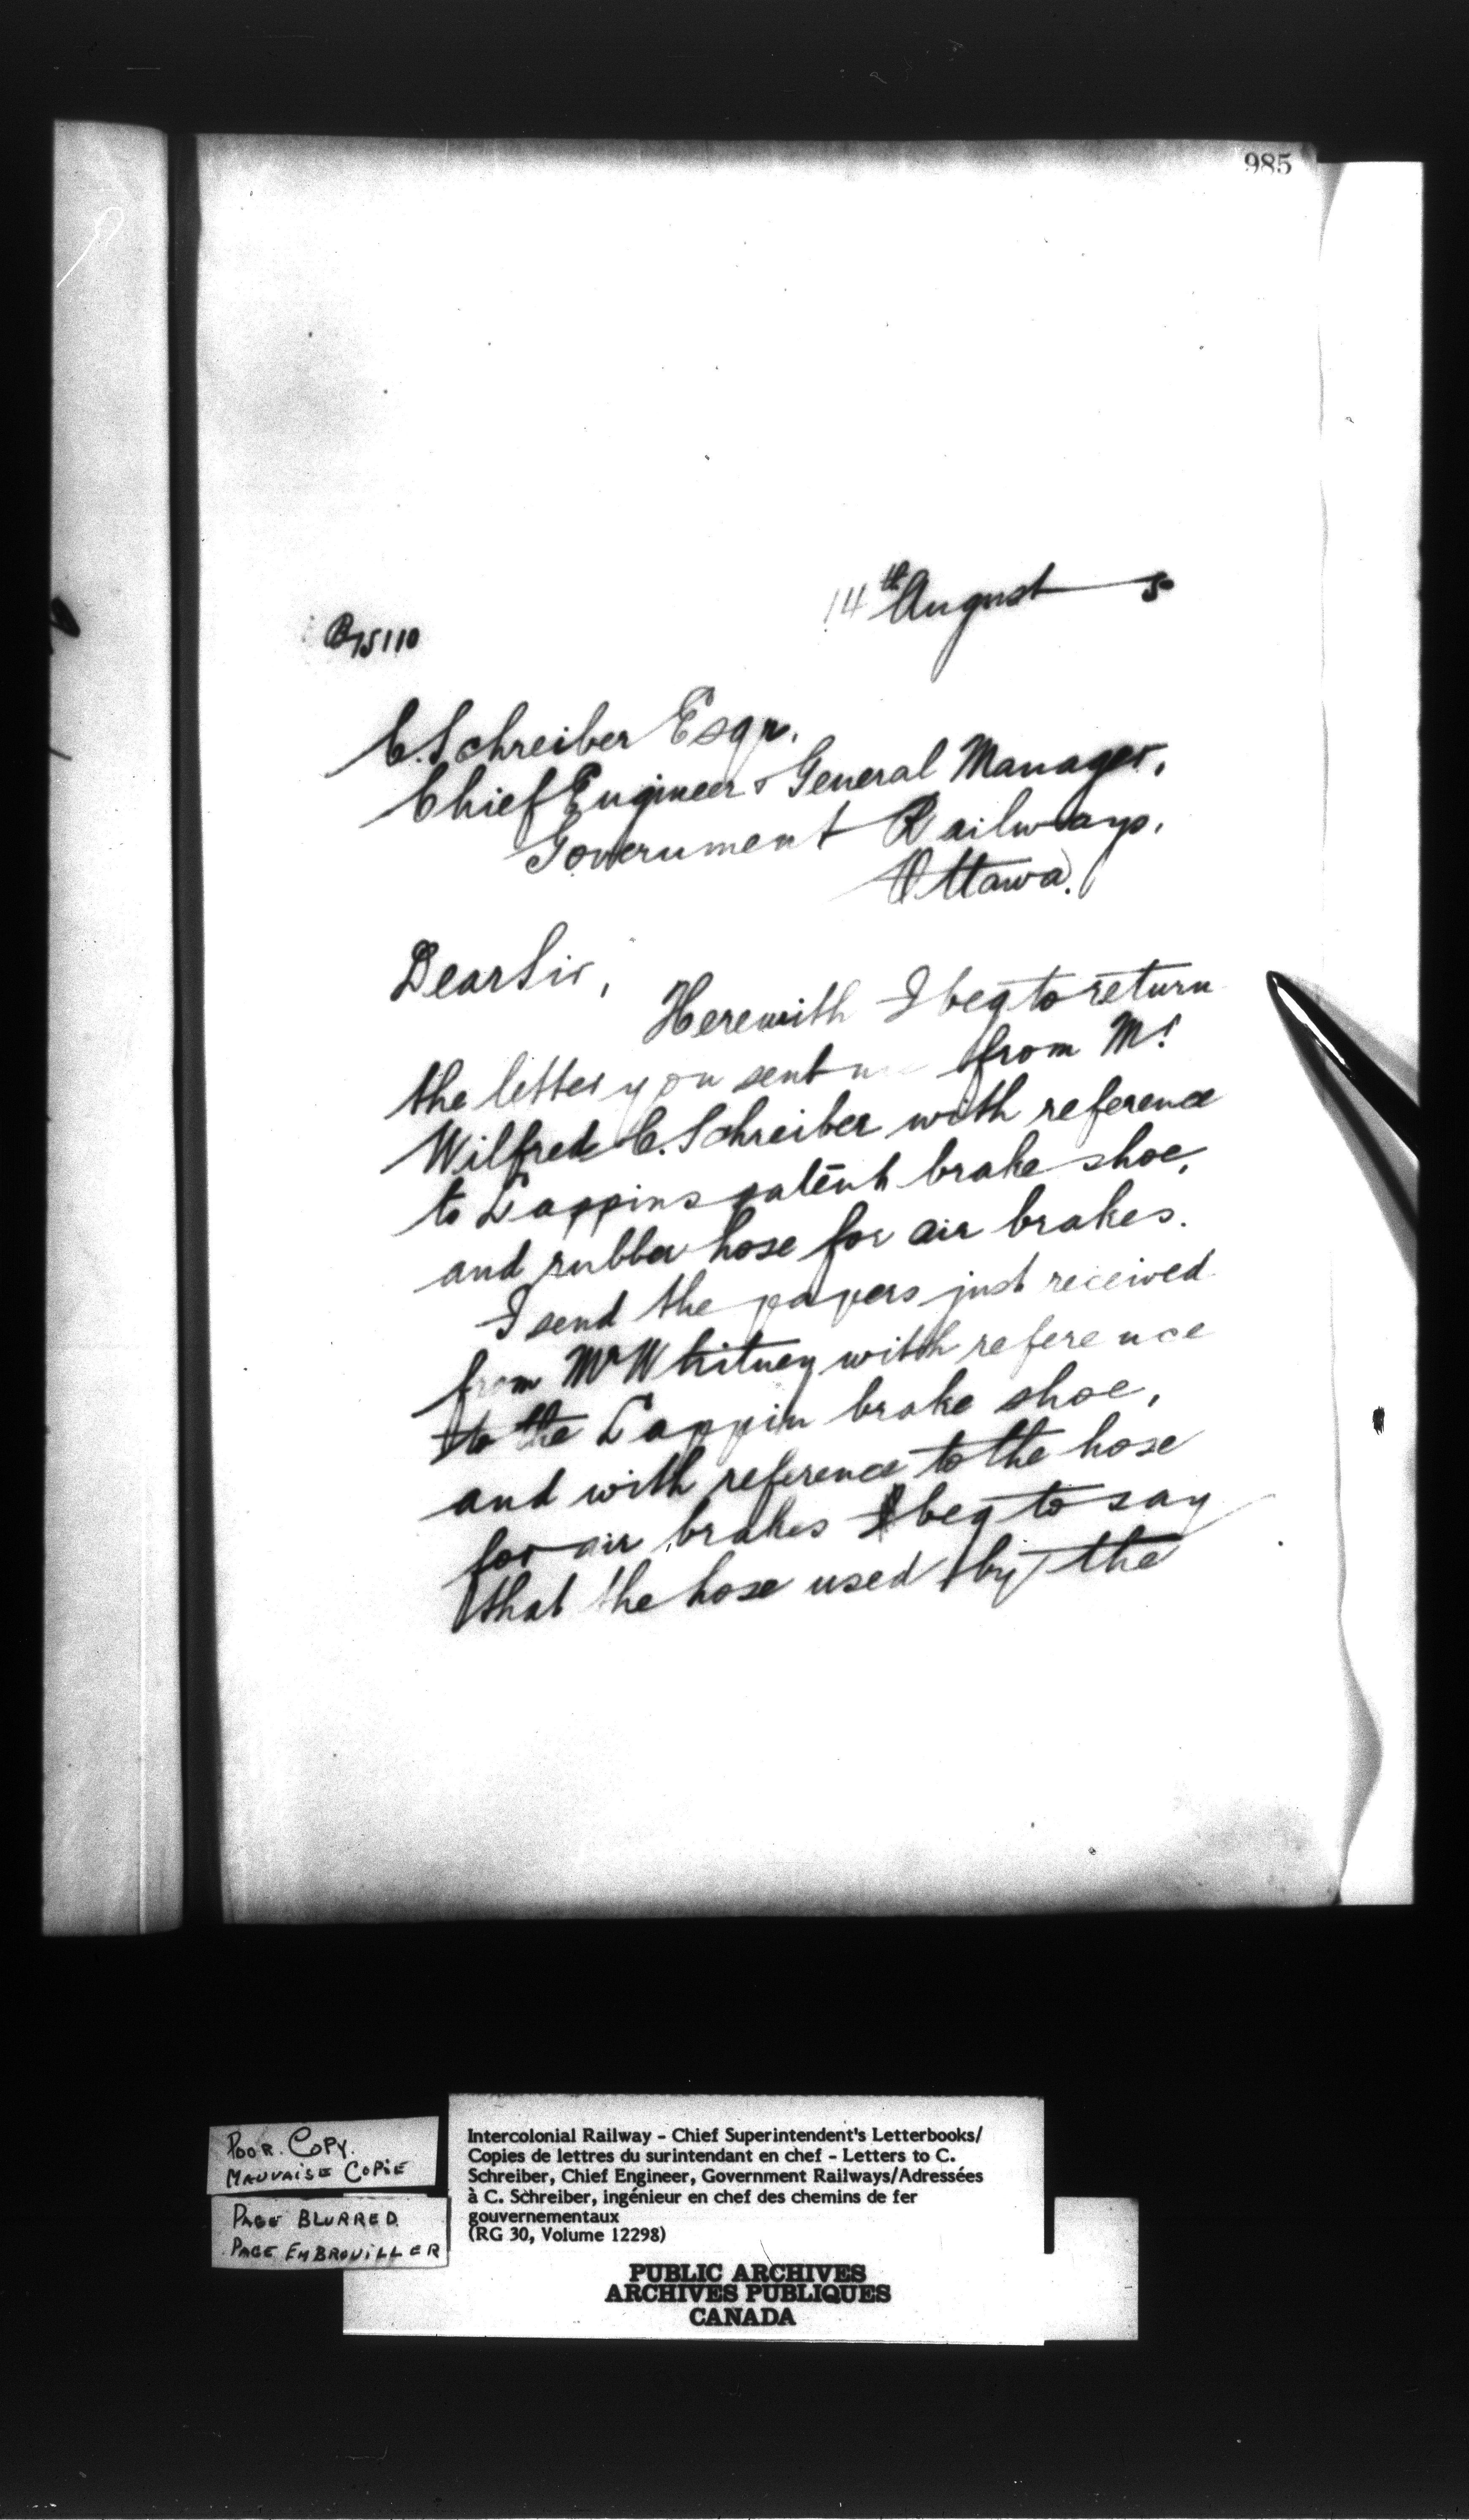 985
14th August 5
B/15110
C. Schreiber Esqr.
Chief Engineer & General Manager,
Government Railways,
Ottawa.
Dear Sir,
Herewith I beg to return
the letter you sent from Mr
Wilfred C. Schreiber with reference
to Lappins patent brake shoe,
and rubber hose for air brakes.
I send the papers just received
from Mr Whitney with reference
to the Lappin brake shoe,
and with reference to the hose
for air brakes I beg to say
that the hose used by the
POOR. COPY.
MAUVAISE COPIE
PAGE BLURRED
PAGE EMBROUILLER
Intercolonial Railway - Chief Superintendent's Letterbooks/
Copies de lettres du surintendant en chef - Letters to C.
Schreiber, Chief Engineer, Government Railways/Adressées
à C. Schreiber, ingénieur en chef des chemins de fer
gouvernementaux
(RG 30, Volume 12298)
PUBLIC ARCHIVES
ARCHIVES PUBLIQUES
CANADA